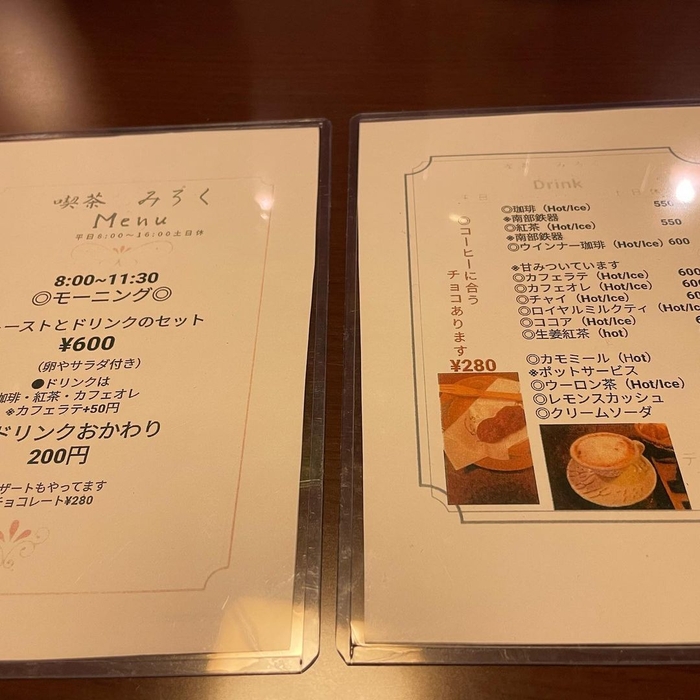 喫茶 みろく
Menu
平日8:00～16:00土日休
8:00~11:30
◎モーニング◎
ーストとドリンクのセット
¥600
(卵やサラダ付き)
●ドリンクは
珈琲・紅茶・カフェオレ
※カフェラテ+50円
ドリンクおかわり
200円
ザートもやってます
チョコレート¥280
Drink
◎珈琲 (Hot/Ice) 550
※南部鉄器
◎紅茶 (Hot/Ice) 550
※南部鉄器
◎ウインナー珈琲 (Hot/Ice) 600
※甘みついています
◎カフェラテ (Hot/Ice) 600
◎カフェオレ (Hot/Ice) 600
◎チャイ (Hot/Ice) 60
◎ロイヤルミルクティ (Hot/Ice
◎ココア (Hot/Ice)
◎生姜紅茶 (hot)
◎カモミール (Hot)
※ポットサービス
◎ウーロン茶 (Hot/Ice)
◎レモンスカッシュ
◎クリームソーダ
◎コーヒーに合う
チョコあります
¥280